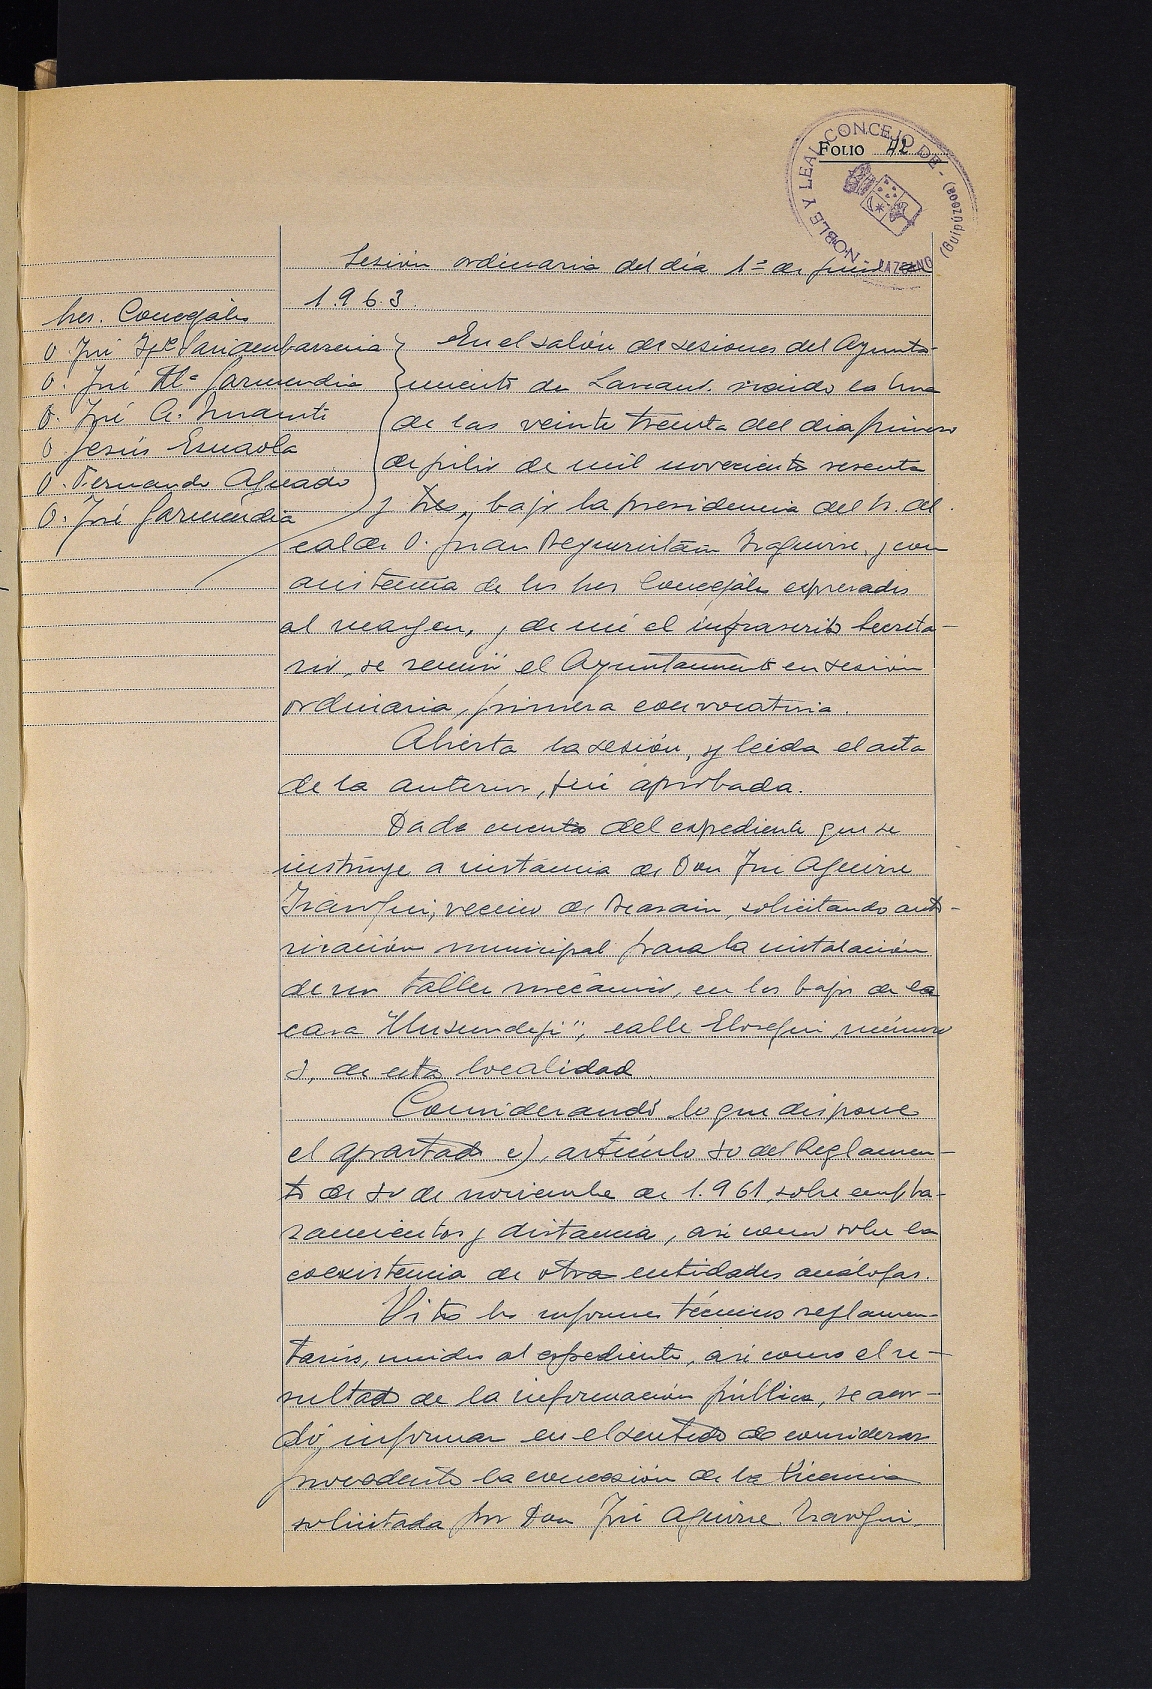 NOBLE Y LEAL CONCEJO DE - LAZCANO (Guipúzcoa)
FOLIO 42
Sesión ordinaria del día 1º de
1.963.
Sres. Concejales
D. José Igº
D. José Mª Garmendia
D. José A.
D. Jesús Esnaola
D. Fernando Aguado
D. José Garmendia
En el salón de sesiones del Ayunta-
miento de Lazcano, siendo la hora
de las veinte treinta del día primero
de julio de mil novecientos sesenta
y tres, bajo la presidencia del Sr. Al-
calde D. Juan Izaguirre, y con
asistencia de los Sres Concejales expresados
al margen, y de mí el infrascrito Secreta-
rio, se reunió el Ayuntamiento en sesión
ordinaria, primera convocatoria.
Abierta la sesión, y leida el acta
de la anterior, fué aprobada.
Dada cuenta del expediente que se
instruye a instancia de Don José Aguirre
vecino de Beasain, solicitando auto-
rización municipal para la instalación
de un taller mecánico, en los bajos de la
casa calle Elosegui, número
3, de esta localidad.
Considerando lo que dispone
el apartado c), artículo 30 del Reglamen-
to de 30 de noviembre de 1.961 sobre empla-
zamientos y distancia, asi como sobre la
coexistencia de otra entidades análogas.
Vistos los informes técnicos reglamen-
tarios, unidos al expediente, asi como el re-
sultado de la información pública, se acor-
dó, informar en el sentido de considerar
procedente la concesión de la licencia
solicitada por Don José Aguirre